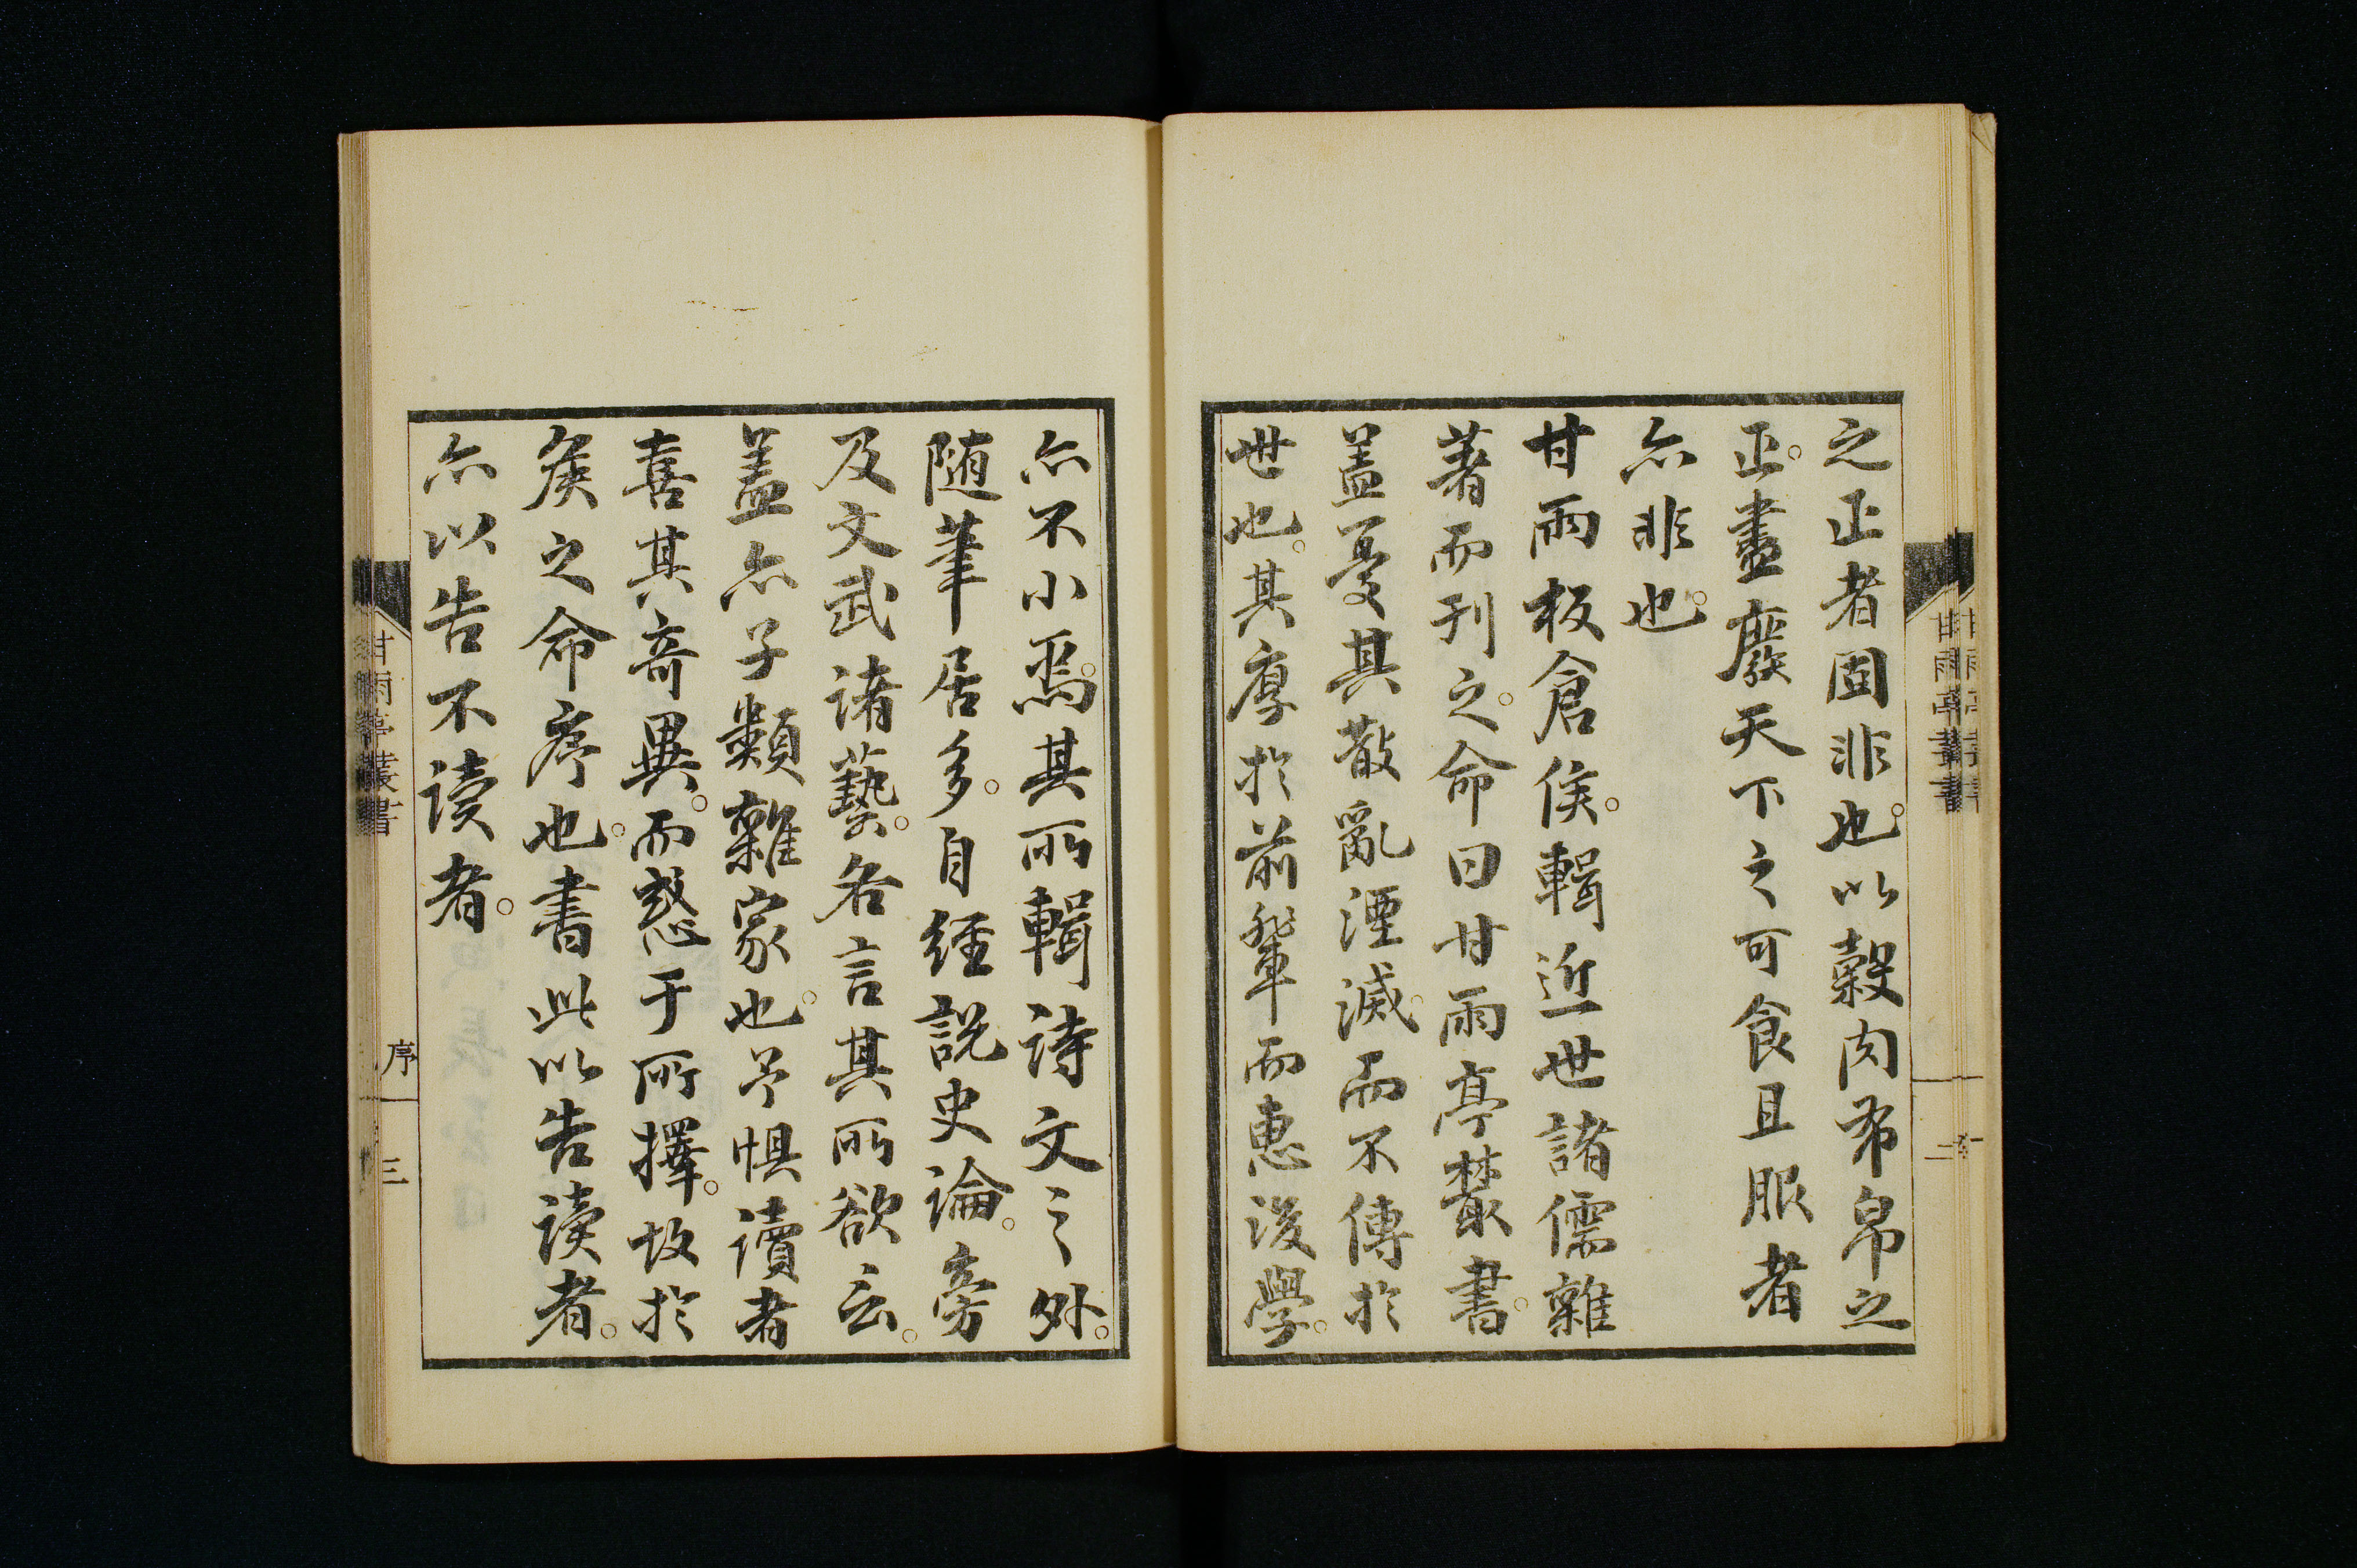 之正者固非也。以穀肉布帛之
正。盡廢天下之可食且服者
亦非也。
甘雨板倉侯。輯近世諸儒雜
著而刊之。命曰甘雨亭叢書。
盖憂其散亂湮滅。而不傳於
世也。其厚於前輩而惠後學。
亦不小焉。其所輯詩文之外。
随筆居多。自經説史論。旁
及文武諸藝。各言其所欲云。
盖亦子類雜家也。予惧讀者
喜其奇異。而惑于所擇。故於
矦之命序也。書此以告读者。
亦以告不读者。
甘雨亭叢書
序
二
甘雨亭叢書
序
三